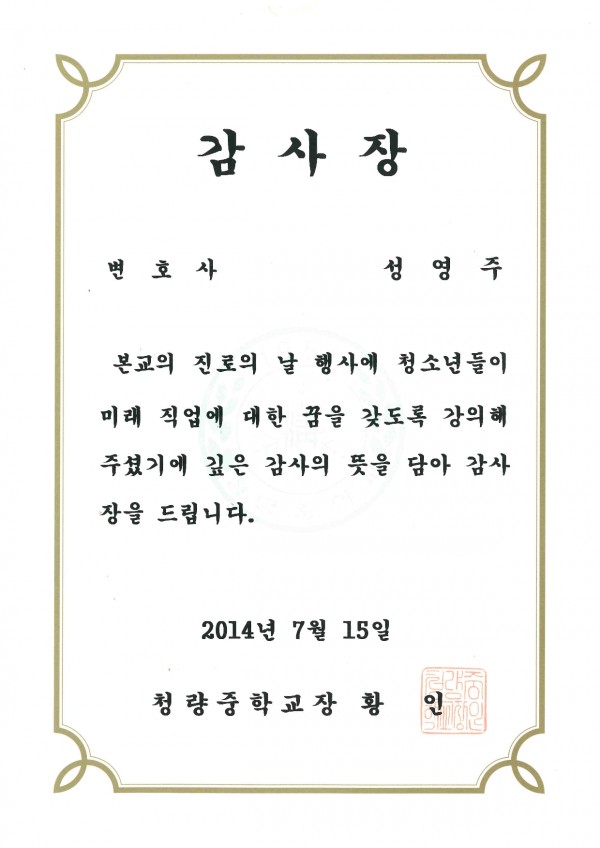 감 사 장
변 호 사 성 영 주
본교의 진로의 날 행사에 청소년들이
미래 직업에 대한 꿈을 갖도록 강의해
주셨기에 깊은 감사의 뜻을 담아 감사
장을 드립니다.
2014년 7월 15일
청량중학교장 황 인